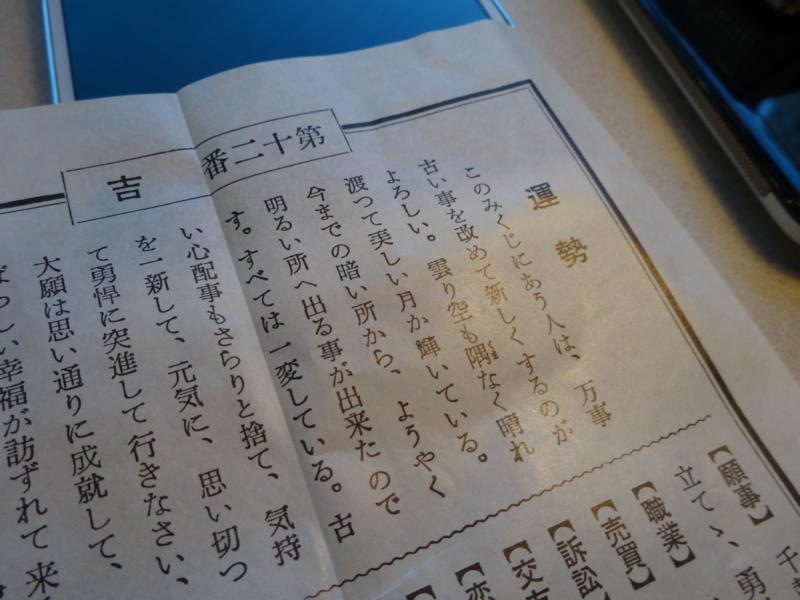 第十二番
吉
運勢
このみくじにあう人は、万事
古い事を改めて新しくするのが
よろしい。雲り空も隅なく晴れ
渡つて美しい月が輝いている。
今までの暗い所から、ようやく
明るい所へ出る事が出来たので
す。すべては一変している。古
い心配事もさらりと捨て、気持
を一新して、元気に、思い切つ
て勇悍に突進して行きなさい、
大願は思い通りに成就して、
しい幸福が訪ずれて来
【願事】
立てゝ、勇
【職業】
【売買】
【訴訟
【交